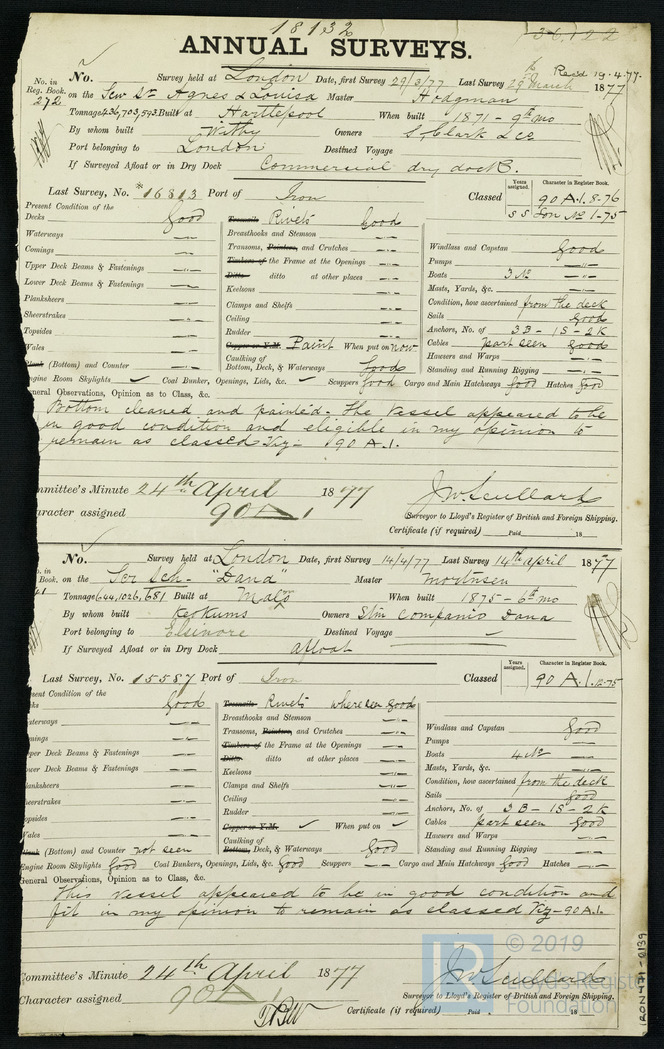 18132
36,122
ANNUAL SURVEYS.
Recd 19.4.77.
No. in Reg. Book. 272 No. Survey held at London Date, first Survey 29/3/77 Last Survey 29th March 1877
on the Scw Sr Agnes & Louisa Master Hodgman
Tonnage 436,703,593. Built at Hartlepool When built 1871 - 9th mo
By whom built Withy Owners S, Clark & Co
Port belonging to London Destined Voyage
If Surveyed Afloat or in Dry Dock Commercial dry dock.
Last Survey, No. *16813 Port of Iron Classed Years assigned. Character in Register Book. 90 A.1. 8-76
S S Lon No 1-75
Present Condition of the
Decks Good
Waterways —"—
Comings —"—
Upper Deck Beams & Fastenings —"—
Lower Deck Beams & Fastenings —"—
Planksheers —"—
Sheerstrakes —"—
Topsides —"—
Wales —"—
Plank (Bottom) and Counter —"—
Treenails Rivets Good
Breasthooks and Stemson —"—
Transoms, Pointers, and Crutches —"—
Timbers of the Frame at the Openings —"—
Ditto ditto at other places —"—
Keelsons —"—
Clamps and Shelfs —"—
Ceiling —"—
Rudder —"—
Copper or Y.M. Paint When put on now
Caulking of
Bottom, Deck, & Waterways Good
Windlass and Capstan Good
Pumps —"—
Boats 3 No —"—
Masts, Yards, &c. —"—
Condition, how ascertained from the deck
Sails Good
Anchors, No. of 3 B - 1 S - 2 K
Cables part seen good
Hawsers and Warps —"—
Standing and Running Rigging —"—
Engine Room Skylights ✓ Coal Bunker, Openings, Lids, &c. ✓ Scuppers Good Cargo and Main Hatchways Good Hatches Good
General Observations, Opinion as to Class, &c.
Bottom cleaned and painted. The Vessel appeared to be
in good condition and eligible in my opinion to
remain as classed Viz - 90 A.1.
Committee's Minute 24th April 1877
Character assigned 90 A 1
J W Scullard
Surveyor to Lloyd's Register of British and Foreign Shipping.
Certificate (if required) Paid 18
No. Survey held at London Date, first Survey 14/4/77 Last Survey 14th April 1877
Book. on the Scr Sch - "Dana" Master Mortensen
Tonnage 644,1026,681 Built at Malo When built 1875 - 6th mo
By whom built Kockums Owners Stm Companio Dana
Port belonging to Elsinore Destined Voyage
If Surveyed Afloat or in Dry Dock afloat
Last Survey, No. 15587 Port of Iron Classed Years assigned. Character in Register Book. 90 A.1. 12-75
Present Condition of the
Decks Good
Waterways —"—
Comings —"—
Upper Deck Beams & Fastenings —"—
Lower Deck Beams & Fastenings —"—
Planksheers —"—
Sheerstrakes —"—
Topsides —"—
Wales —"—
Plank (Bottom) and Counter not seen
Treenails Rivets where seen Good
Breasthooks and Stemson —"—
Transoms, Pointers, and Crutches —"—
Timbers of the Frame at the Openings —"—
Ditto ditto at other places —"—
Keelsons —"—
Clamps and Shelfs —"—
Ceiling —"—
Rudder —"—
Copper or Y.M. ✓ When put on ✓
Caulking of
Bottom, Deck, & Waterways Good
Windlass and Capstan Good
Pumps —"—
Boats 4 No —"—
Masts, Yards, &c. —"—
Condition, how ascertained from the deck
Sails Good
Anchors, No. of 3 B - 1 S - 2 K
Cables part seen Good
Hawsers and Warps —"—
Standing and Running Rigging —"—
Engine Room Skylights Good Coal Bunkers, Openings, Lids, &c. Good Scuppers —"— Cargo and Main Hatchways Good Hatches —"—
General Observations, Opinion as to Class, &c.
This Vessel appeared to be in good condition and
fit in my opinion to remain as classed Viz - 90 A.1.
Committee's Minute 24th April 1877
Character assigned 90 A 1
J W Scullard
Surveyor to Lloyd's Register of British and Foreign Shipping.
Certificate (if required) Paid 18
LR
© 2019
Lloyd's Register
Foundation
IRON471-0139